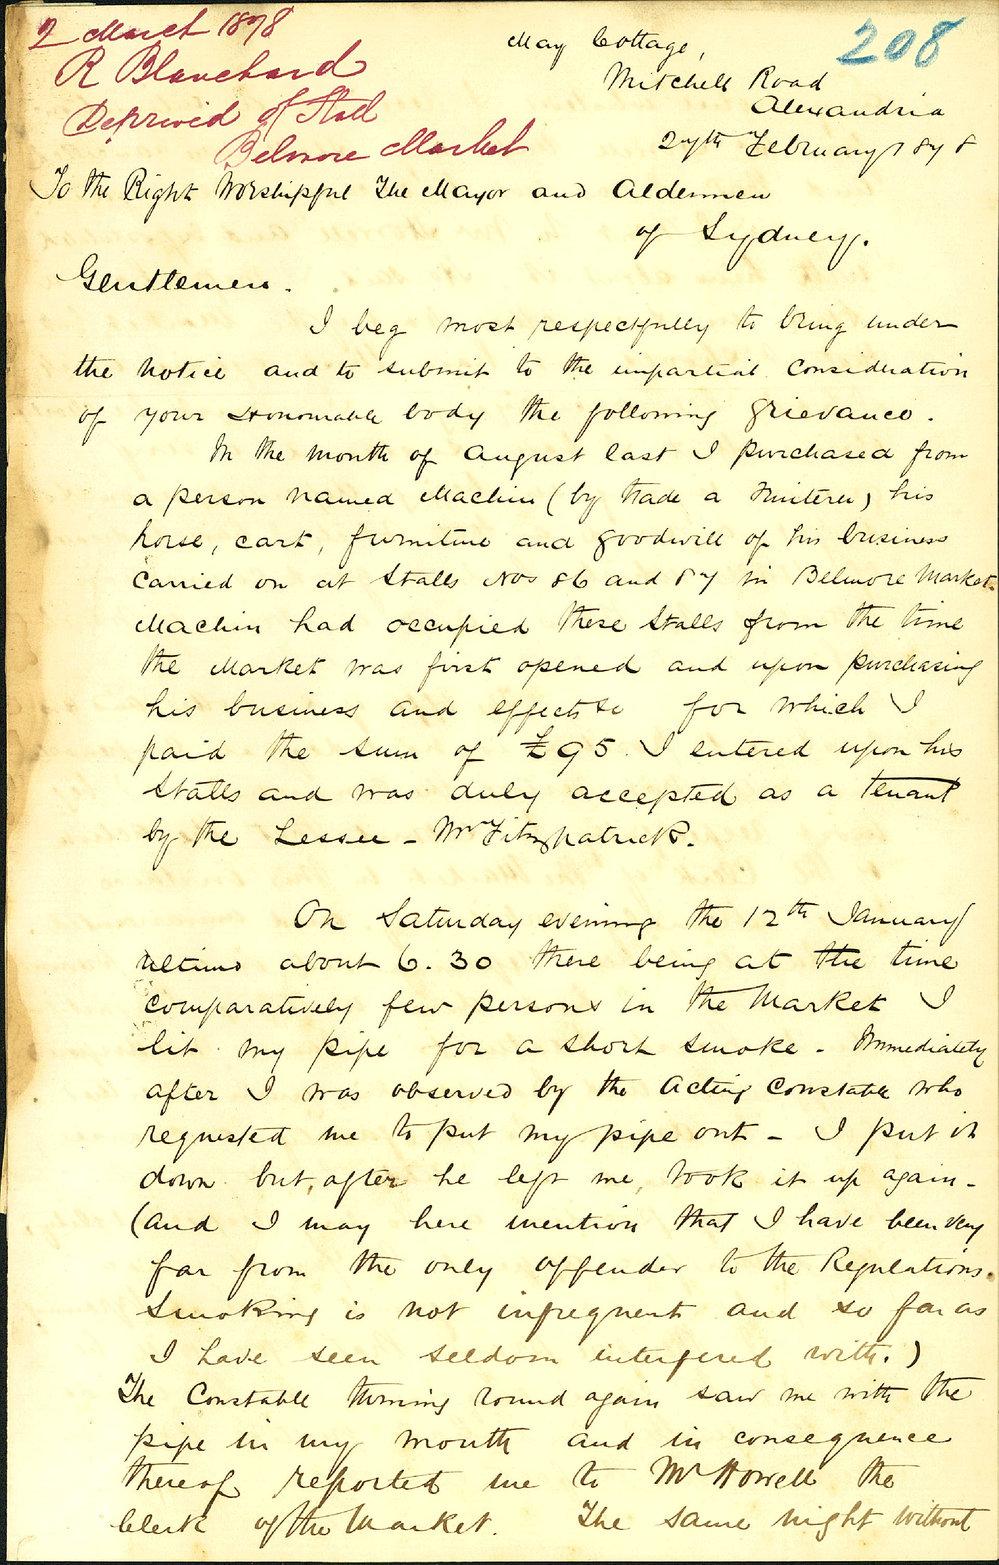 2 March 1878
R Blanchard
Deprived of Stall
Belmore Market
208
May Cottage,
Mitchell Road
Alexandria
27th February 1878
To the Right Worshipful The Mayor and Aldermen
of Sydney.
Gentlemen.
I beg most respectfully to bring under
the notice and to submit to the impartial consideration
of your Honourable body the following grievance.
In the month of August last I purchased from
a person named Machin (by trade a Fruiterer) his
horse, cart, furniture and goodwill of his business
carried on at Stalls Nos 86 and 87 in Belmore Market.
Machin had occupied these Stalls from the time
the Market was first opened and upon purchasing
his business and effects &c for which I
paid the sum of £95. I entered upon his
Stalls and was duly accepted as a tenant
by the Lessee - Mr Fitzpatrick.
On Saturday evening the 12th January
ultimo about 6.30 there being at the time
comparatively few persons in the Market I
lit my pipe for a short smoke - Immediately
after I was observed by the Acting Constable who
requested me to put my pipe out - I put it
down but, after he left me, took it up again -
(and I may here mention that I have been very
far from the only offender to the Regulations.
Smoking is not infrequent and so far as
I have seen seldom interfered with.)
The Constable turning round again saw me with the
pipe in my mouth and in consequence
thereof reported me to Mr Howell the
Clerk of the Market. The same night without